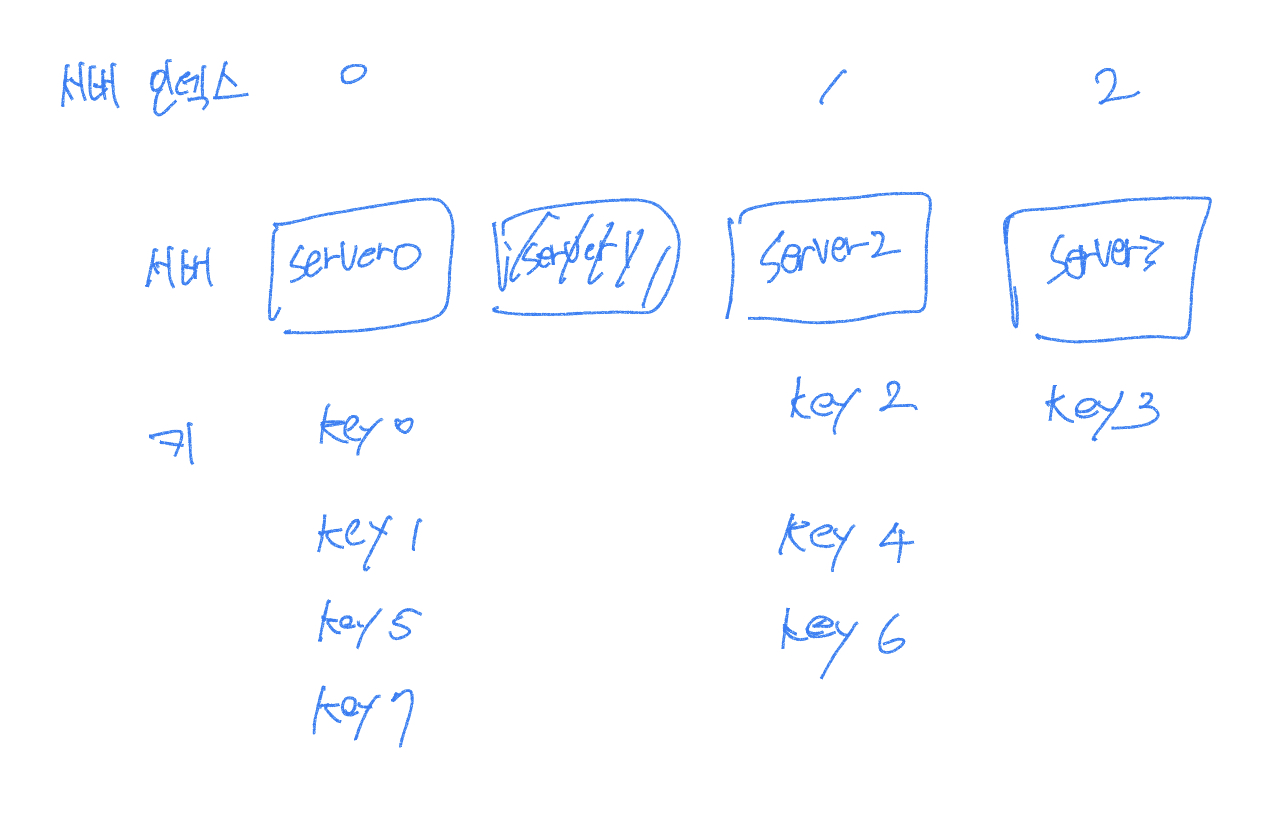 서버 인덱스 0 1 2
서버 server0 server1 server2 server3
키 key0 key2 key3
key1 key4
key5 key6
key7